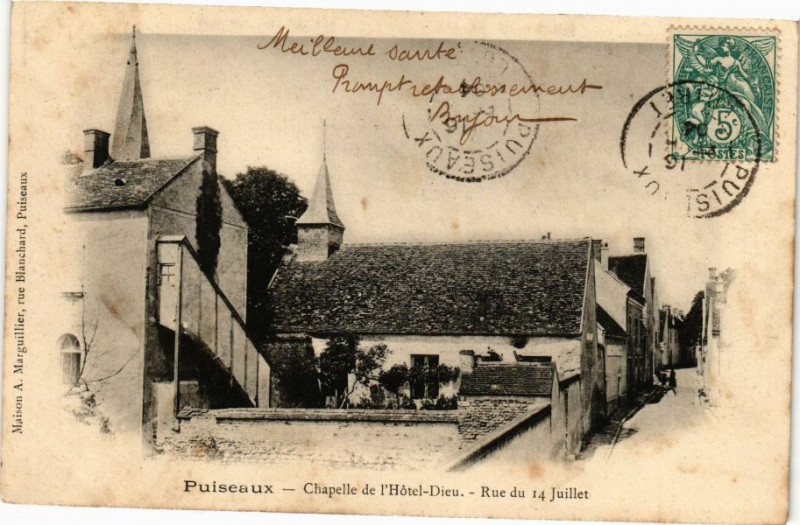 Meilleure santé
Prompt retablissement
Bonjour
PUISEAUX
LOIRET
16
04
5c
POSTES
PUISEAUX
Maison A. Marguillier, rue Blanchard, Puiseaux
Puiseaux — Chapelle de l'Hôtel-Dieu. - Rue du 14 Juillet